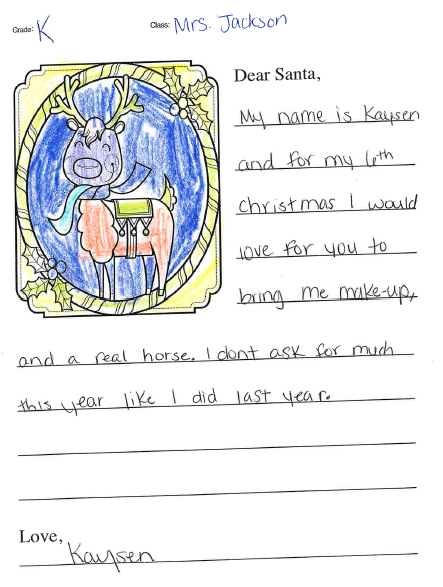 Grade: K Class: Mrs. Jackson
Dear Santa,
My name is Kaysen
and for my 6th
christmas I would
love for you to
bring me make-up,
and a real horse. I dont ask for much
this year like I did last year.
Love,
Kaysen